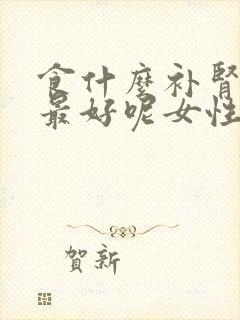 食什麼补腎
最好呢女性
賀新